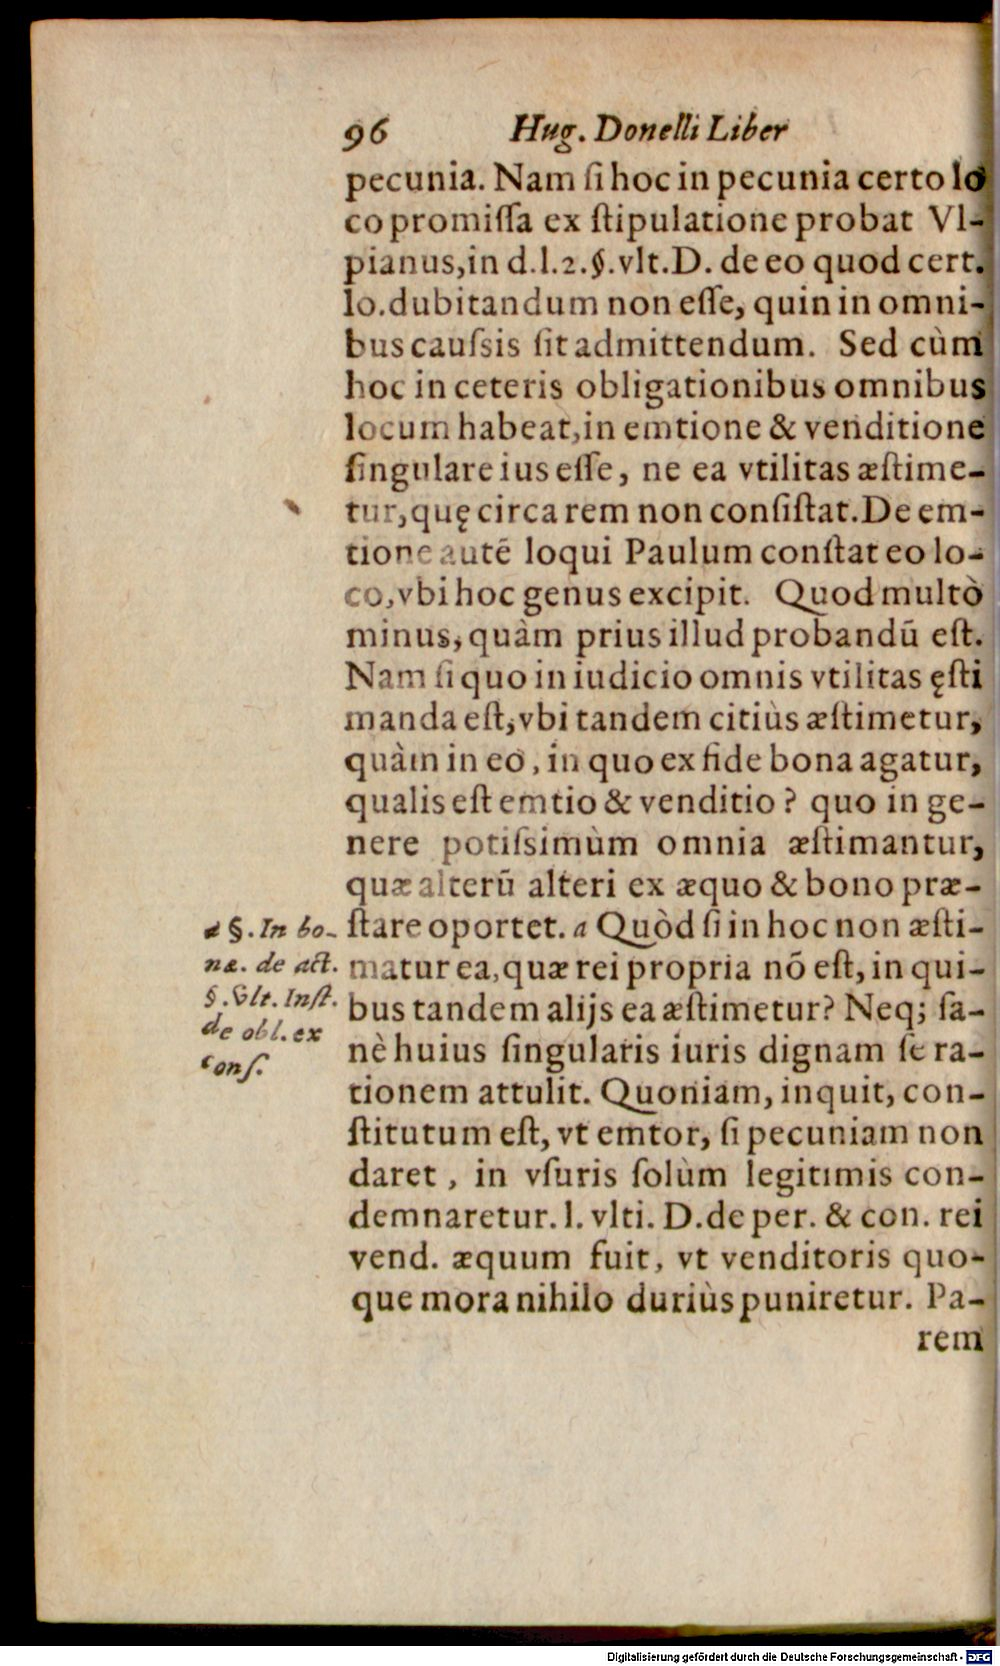 96 Hug. Donelli Liber
pecunia. Nam ſi hoc in pecunia certo lo
co promiſſa ex ſtipulatione probat Vl-
pianus,in d.l.2.§.vlt.D. de eo quod cert.
lo.dubitandum non eſſe, quin in omni-
bus cauſsis ſit admittendum. Sed cùm
hoc in ceteris obligationibus omnibus
locum habeat,in emtione & venditione
ſingulare ius eſſe, ne ea vtilitas æſtime-
tur,quę circa rem non conſiſtat.De em-
tione autē loqui Paulum conſtat eo lo-
co,vbi hoc genus excipit. Quod multò
minus, quàm prius illud probandū eſt.
Nam ſi quo in iudicio omnis vtilitas ęſti
manda eſt,vbi tandem citiùs æſtimetur,
quàm in eo, in quo ex fide bona agatur,
qualis eſt emtio & venditio? quo in ge-
nere potiſsimùm omnia æſtimantur,
quæ alterū alteri ex æquo & bono præ-
ſtare oportet. a Quòd ſi in hoc non æſti-
matur ea,quæ rei propria nō eſt, in qui-
bus tandem alijs ea æſtimetur? Neq; ſa-
nè huius ſingularis iuris dignam ſe ra-
tionem attulit. Quoniam, inquit, con-
ſtitutum eſt, vt emtor, ſi pecuniam non
daret, in vſuris ſolùm legitimis con-
demnaretur. l. vlti. D.de per. & con. rei
vend. æquum fuit, vt venditoris quo-
que mora nihilo duriùs puniretur. Pa-
rem
a §. In bo-
næ. de act.
§. vlt. Inſt.
de obl. ex
conſ.
Digitalisierung gefördert durch die Deutsche Forschungsgemeinschaft - DFG